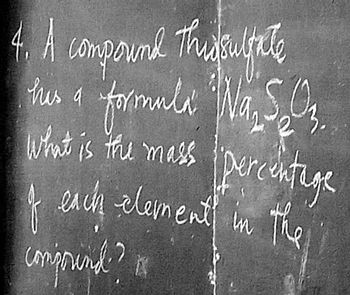 4. A compound Thiosulfate
has a formula Na₂S₂O₃.
What is the mass percentage
of each element in the
compound?